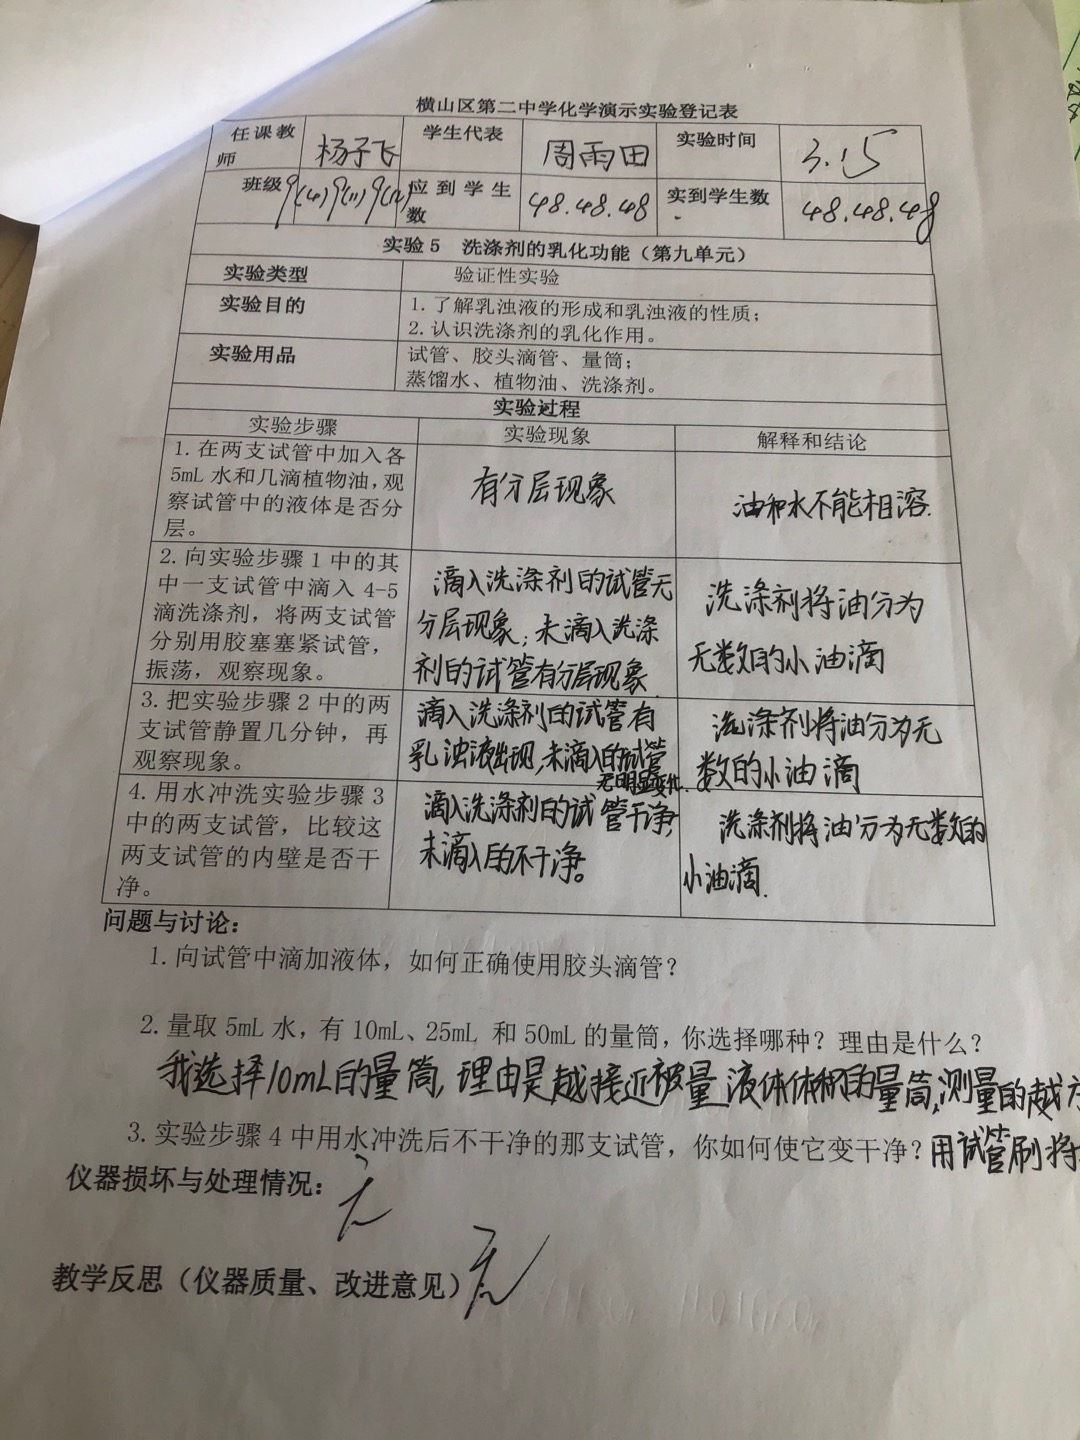 横山区第二中学化学演示实验登记表
任课教师 杨子飞 学生代表 周雨田 实验时间 3.15
班级 9(4) 9(11) 9(12) 应到学生数 48.48.48 实到学生数 48.48.48
实验5 洗涤剂的乳化功能（第九单元）
实验类型 验证性实验
实验目的 1.了解乳浊液的形成和乳浊液的性质；
2.认识洗涤剂的乳化作用。
实验用品 试管、胶头滴管、量筒；
蒸馏水、植物油、洗涤剂。
实验过程
实验步骤 实验现象 解释和结论
1.在两支试管中加入各
5mL水和几滴植物油,观
察试管中的液体是否分
层。
有分层现象
油和水不能相溶.
2.向实验步骤1中的其
中一支试管中滴入4-5
滴洗涤剂，将两支试管
分别用胶塞塞紧试管，
振荡，观察现象。
滴入洗涤剂的试管无
分层现象；未滴入洗涤
剂的试管有分层现象
洗涤剂将油分为
无数的小油滴
3.把实验步骤2中的两
支试管静置几分钟，再
观察现象。
滴入洗涤剂的试管有
乳浊液出现,未滴入的试管
无明显变化.
洗涤剂将油分为无
数的小油滴
4.用水冲洗实验步骤3
中的两支试管，比较这
两支试管的内壁是否干
净。
滴入洗涤剂的试管干净,
未滴入的不干净。
洗涤剂将油分为无数的
小油滴.
问题与讨论：
1.向试管中滴加液体，如何正确使用胶头滴管？
2.量取5mL水，有10mL、25mL 和50mL的量筒，你选择哪种？理由是什么？
我选择10mL的量筒,理由是越接近被量液体体积的量筒,测量的越
3.实验步骤4中用水冲洗后不干净的那支试管，你如何使它变干净？用试管刷将
仪器损坏与处理情况：
无
教学反思（仪器质量、改进意见）无